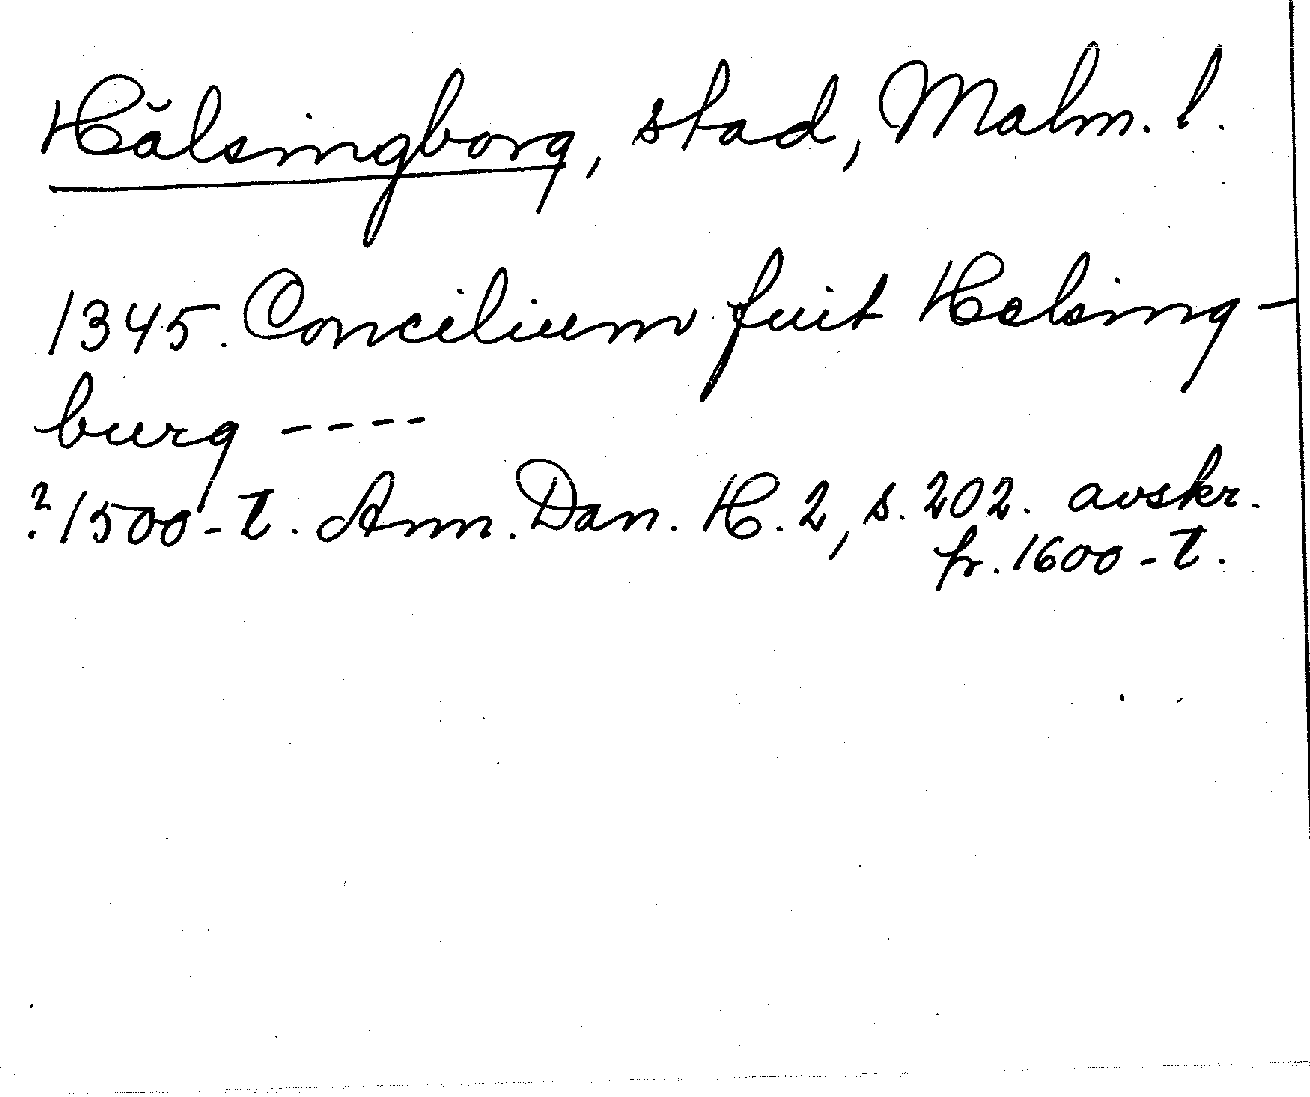 Hälsingborg, stad, Malm. l.
1345. Concilium fuit Helsing-
burg ----
?1500-t. Ann. Dan. H. 2, s. 202. avskr.
fr. 1600-t.